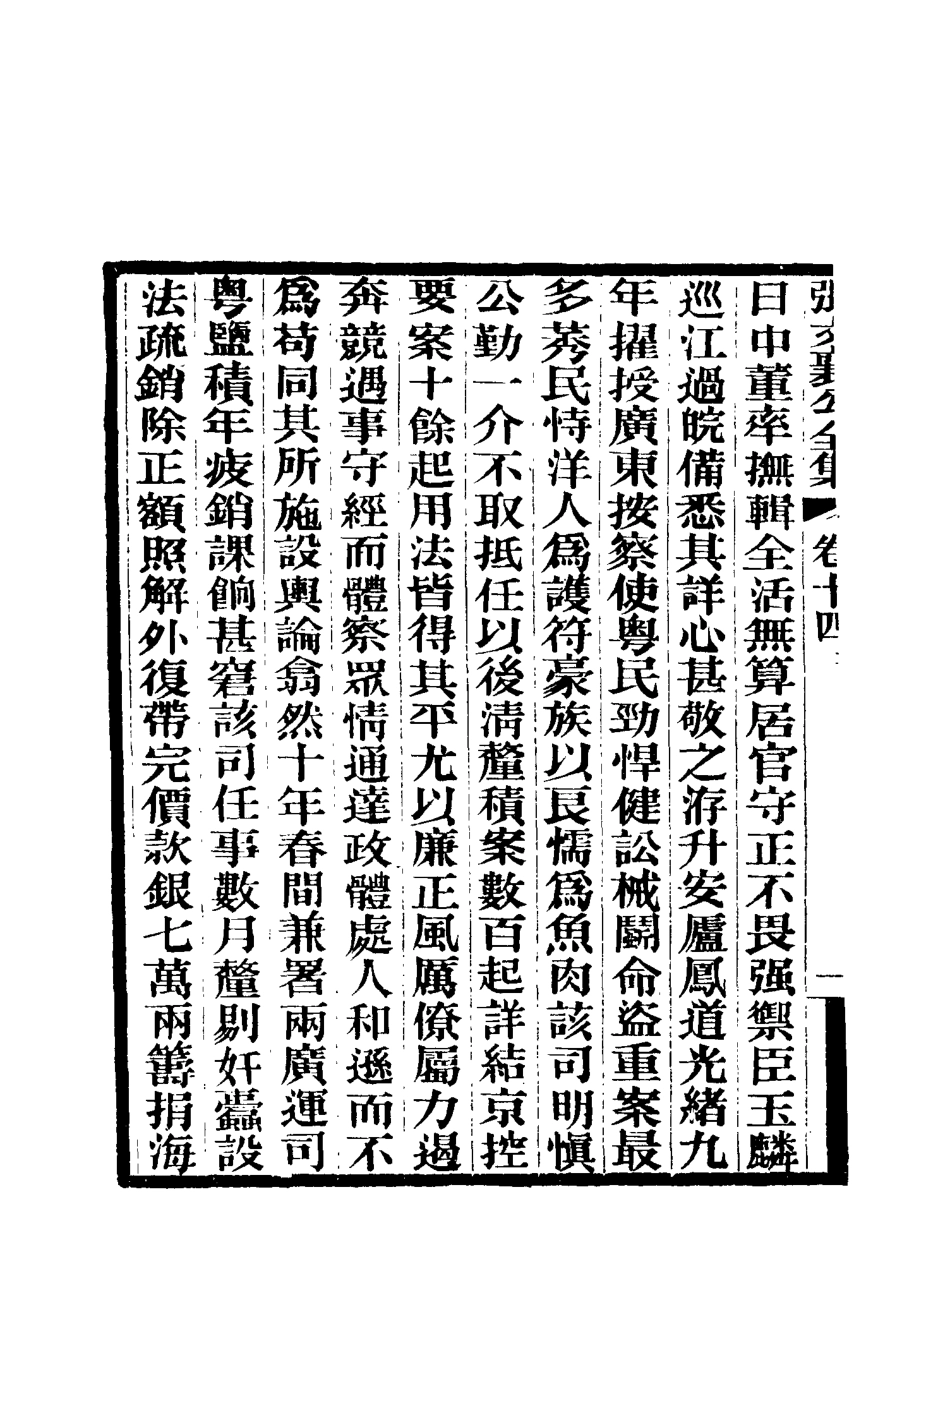 張文襄公全集 卷十四 一
日中董率撫輯全活無算居官守正不畏强禦臣玉麟
巡江過皖備悉其詳心甚敬之洊升安廬鳳道光緒九
年擢授廣東按察使粵民勁悍健訟械鬭命盜重案最
多莠民恃洋人爲護符豪族以良懦爲魚肉該司明愼
公勤一介不取抵任以後淸釐積案數百起詳結京控
要案十餘起用法皆得其平尤以廉正風厲僚屬力遏
奔競遇事守經而體察眾情通達政體處人和遜而不
爲苟同其所施設輿論翕然十年春間兼署兩廣運司
粵鹽積年疲銷課餉甚窘該司任事數月釐剔奸蠹設
法疏銷除正額照解外復帶完價款銀七萬兩籌捐海